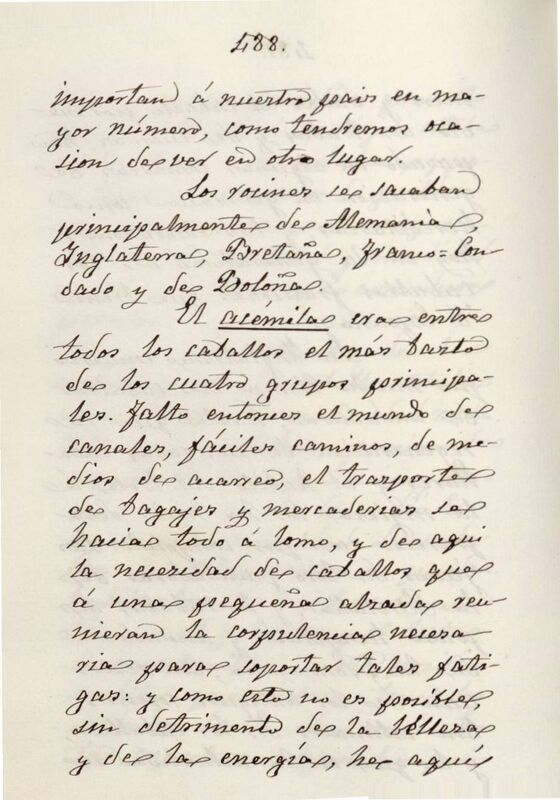 488.
importan á nuestro pais en ma-
yor número, como tendremos oca-
sion de ver en otro lugar.
Los rocines se sacaban
principalmente de Alemania,
Inglaterra, Bretaña, Franco-Con-
dado y de Boloña.
El acémila era entre
todos los caballos el más basto
de los cuatro grupos principa-
les. Falto entonces el mundo de
canales, fáciles caminos, de me-
dios de acarreo, el trasporte
de bagajes y mercaderias se
hacia todo á lomo, y de aqui
la necesidad de caballos que
á una pequeña alzada reu-
nieran la corpulencia necesa-
ria para soportar tales fati-
gas: y como esto no es posible,
sin detrimento de la belleza
y de la energía, he aquí